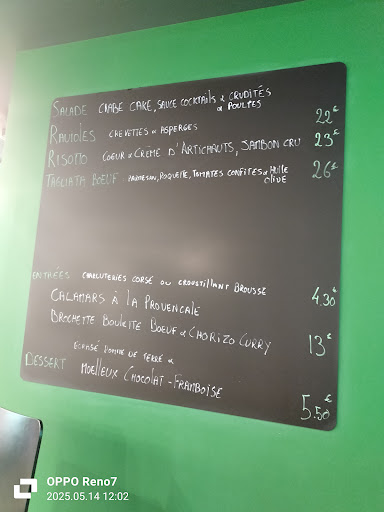 SALADE CRABE CAKE, SAUCE COCKTAILS & CRUDITÉS
& POULPES 22€
RAVIOLES CREVETTES & ASPERGES
RISOTTO COEUR & CRÈME D'ARTICHAUTS, JAMBON CRU 23€
TAGLIATA BOEUF PARMESAN, ROQUETTE, TOMATES CONFITES & HUILE OLIVE 26€
ENTRÉES CHARCUTERIES CORSE OU CROUSTILLANT BROUSSE 4.30€
CALAMARS À LA PROVENCALE
BROCHETTE BOULETTE BOEUF & CHORIZO CURRY 13€
ECRASÉ POMME DE TERRE &
DESSERT MOELLEUX CHOCOLAT - FRAMBOISE 5.50€
OPPO Reno7
2025.05.14 12:02